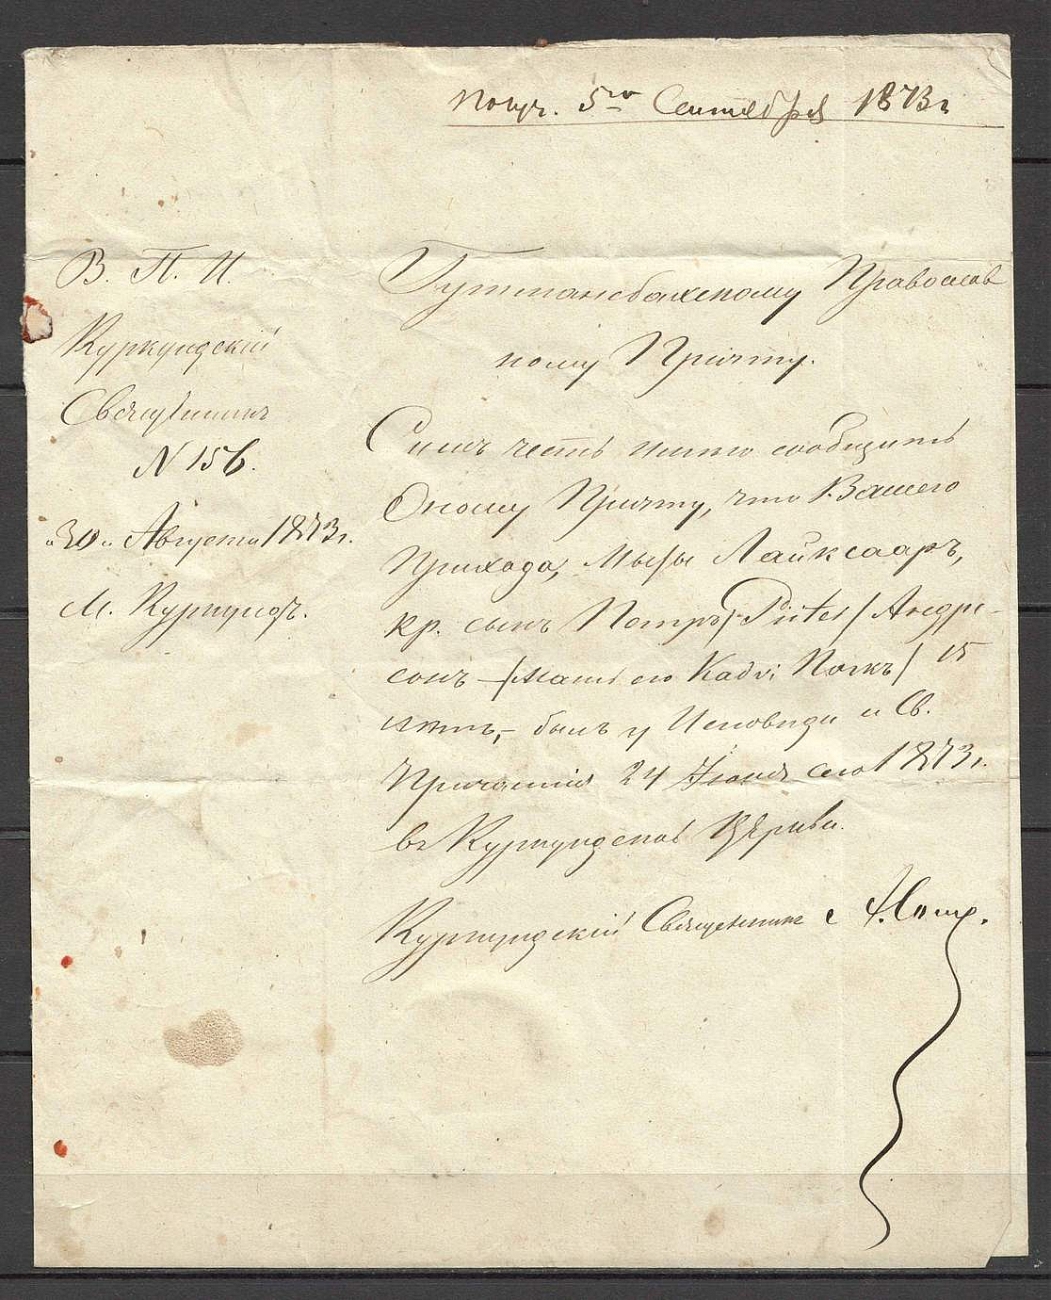 Получ. 5го Сентября 1873 г
В. П. И.
Куркундскій
Священникъ
N 156.
"30" Августа 1873 г.
М. Куркундъ.
Гутмансбахскому Православ
ному Причту.
Симъ честь имѣю сообщить
Оному Причту, что Вашего
Прихода, Мызы Лайксааръ,
кр. сынъ Петръ / Peter / Андре-
сонъ – / мать его Kadri Покъ / 15
лѣтъ, – былъ у Исповѣди и Св.
Причастія 24 Іюня сего 1873 г.
въ Куркундской Церкви.
Куркундскій Священникъ